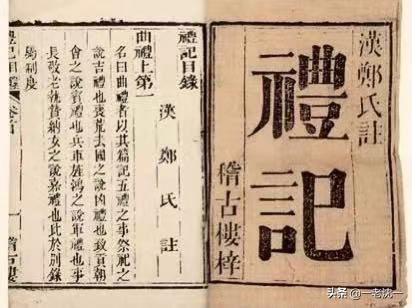 漢鄭氏註
禮記
稽古樓梓
禮記目錄
漢鄭氏註
曲禮上第一
名曰曲禮者以其篇記五禮之事祭祀之
說吉禮也喪荒去國之說凶禮也致貢朝
會之說賓禮也兵車旌鴻之說軍禮也事
長敬老執贄納女之說嘉禮也此於別錄
屬制度
一
稽古樓
头条 @一老沈一